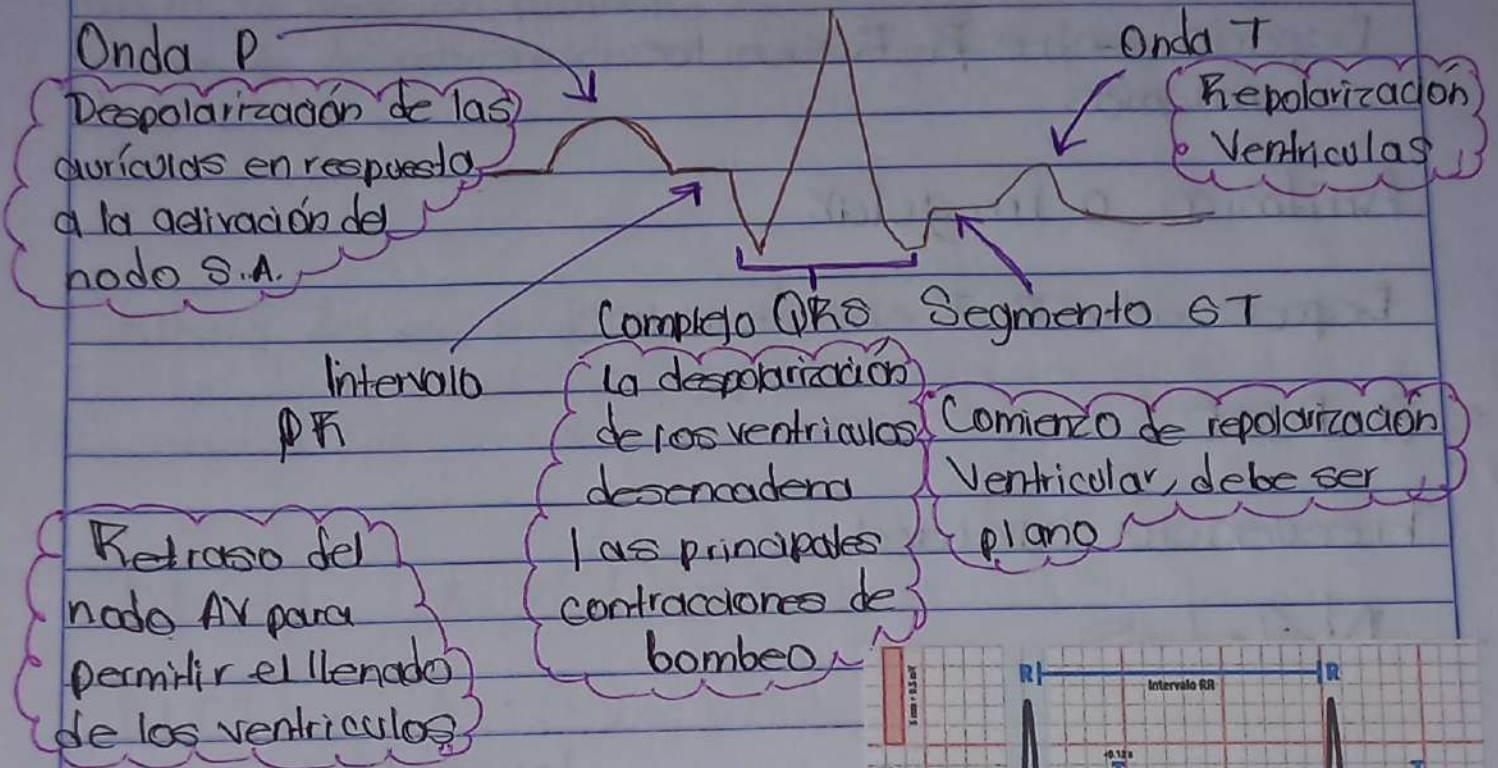 Onda P
Despolarización de las
aurículas en respuesta
a la activación del
nodo S.A.
Onda T
Repolarización
Ventriculas
Complejo QRS
Segmento ST
Intervalo
PR
La despolarización
de los ventriculos
desencadena
las principales
contracciones de
bombeo
Comienzo de repolarización
Ventricular, debe ser
plano
Retraso del
nodo AV para
permitir el llenado
de los ventriculos
R
Intervalo RR
R
5 mm = 0.5 mV